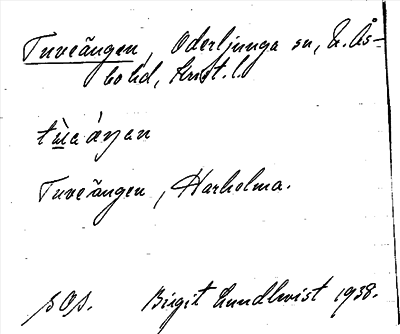 Tuveängen, Oderljunga sn, N. Ås-
bo hd, Krist. l.
Tuveängen, Harholma.
sOs. Birgit Lundkvist 1938.